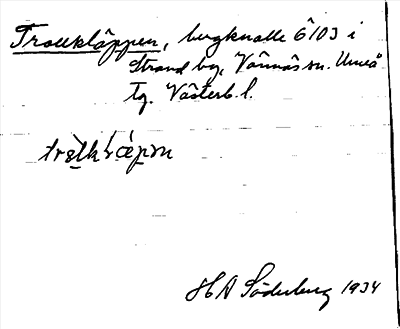 Trollkläppen, bergknalle 6103 i
Strand by, Vännäs sn. Umeå
tg. Västerb. l.
HA Söderberg 1934